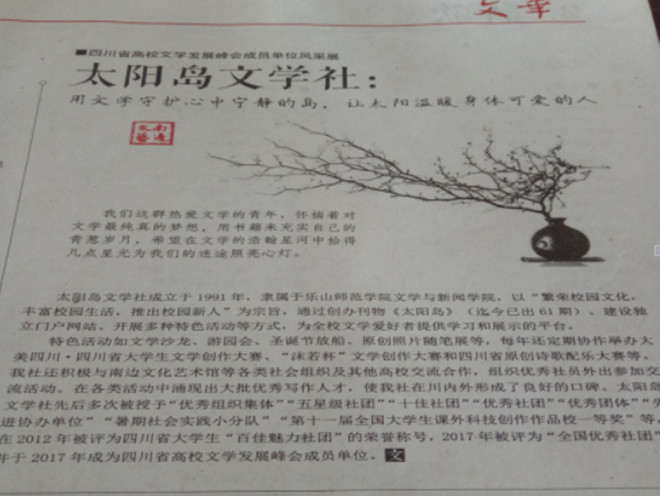 文華
■四川省高校文学发展峰会成员单位风采展
太阳岛文学社：
用文学守护心中宁静的岛，让太阳温暖身体可爱的人
南边文艺
我们这群热爱文学的青年，怀揣着对
文学最纯真的梦想，用书籍来充实自己的
青葱岁月，希望在文学的浩翰星河中拾得
几点星光为我们的迷途照亮心灯。
太阳岛文学社成立于1991年，隶属于乐山师范学院文学与新闻学院，以“繁荣校园文化，
丰富校园生活，推出校园新人”为宗旨，通过创办刊物《太阳岛》（迄今已出61期）、建设独
立门户网站、开展多种特色活动等方式，为全校文学爱好者提供学习和展示的平台。
特色活动如文学沙龙、游园会、圣诞节放船、原创照片随笔展等，每年还定期协作举办大
美四川·四川省大学生文学创作大赛、“沫若杯”文学创作大赛和四川省原创诗歌配乐大赛等。
我社还积极与南边文化艺术馆等各类社会组织及其他高校交流合作，组织优秀社员外出参加交
流活动。在各类活动中涌现出大批优秀写作人才，使我社在川内外形成了良好的口碑。太阳岛
文学社先后多次被授予“优秀组织集体”“五星级社团”“十佳社团”“优秀社团”“优秀团体”“先
进协办单位”“暑期社会实践小分队”“第十一届全国大学生课外科技创作作品校一等奖”等，
在2012年被评为四川省大学生“百佳魅力社团”的荣誉称号，2017年被评为“全国优秀社团”
并于2017年成为四川省高校文学发展峰会成员单位。文